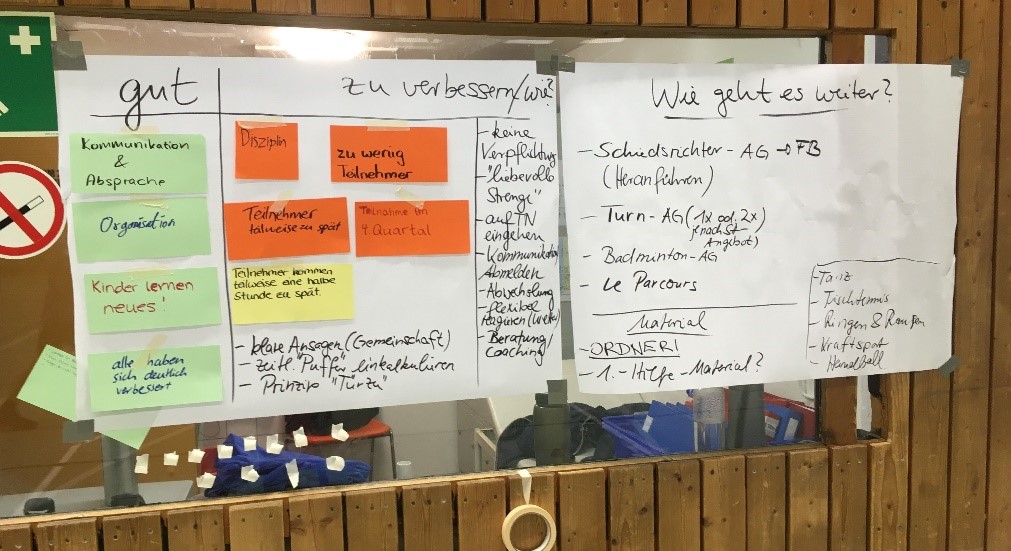 gut
zu verbessern/wie?
Kommunikation
&
Absprache
Organisation
Kinder lernen
neues!
alle haben
sich deutlich
verbessert
Disziplin
zu wenig
Teilnehmer
Teilnehmer
teilweise zu spät
Teilnahme im
4. Quartal
Teilnehmer kommen
teilweise eine halbe
Stunde zu spät.
- klare Ansagen (Gemeinschaft)
- zeitl. "Puffer" einkalkulieren
- Prinzip "Tür zu"
- keine
Verpflichtung
- "liebevolle
Strenge"
- auf TN
eingehen
- Kommunikation
Abmelden
- Abwechslung
- flexibel
reagieren (Wetter)
- Beratung/
Coaching
Wie geht es weiter?
- Schiedsrichter-AG → FB
(Heranführen)
- Turn-AG (1x od. 2x)
je nach
Angebot)
- Badminton-AG
- Le Parcours
Material
- ORDNER!
- 1.-Hilfe-Material?
- Tanz
- Tischtennis
- Ringen & Raufen
- Kraftsport
- Handball